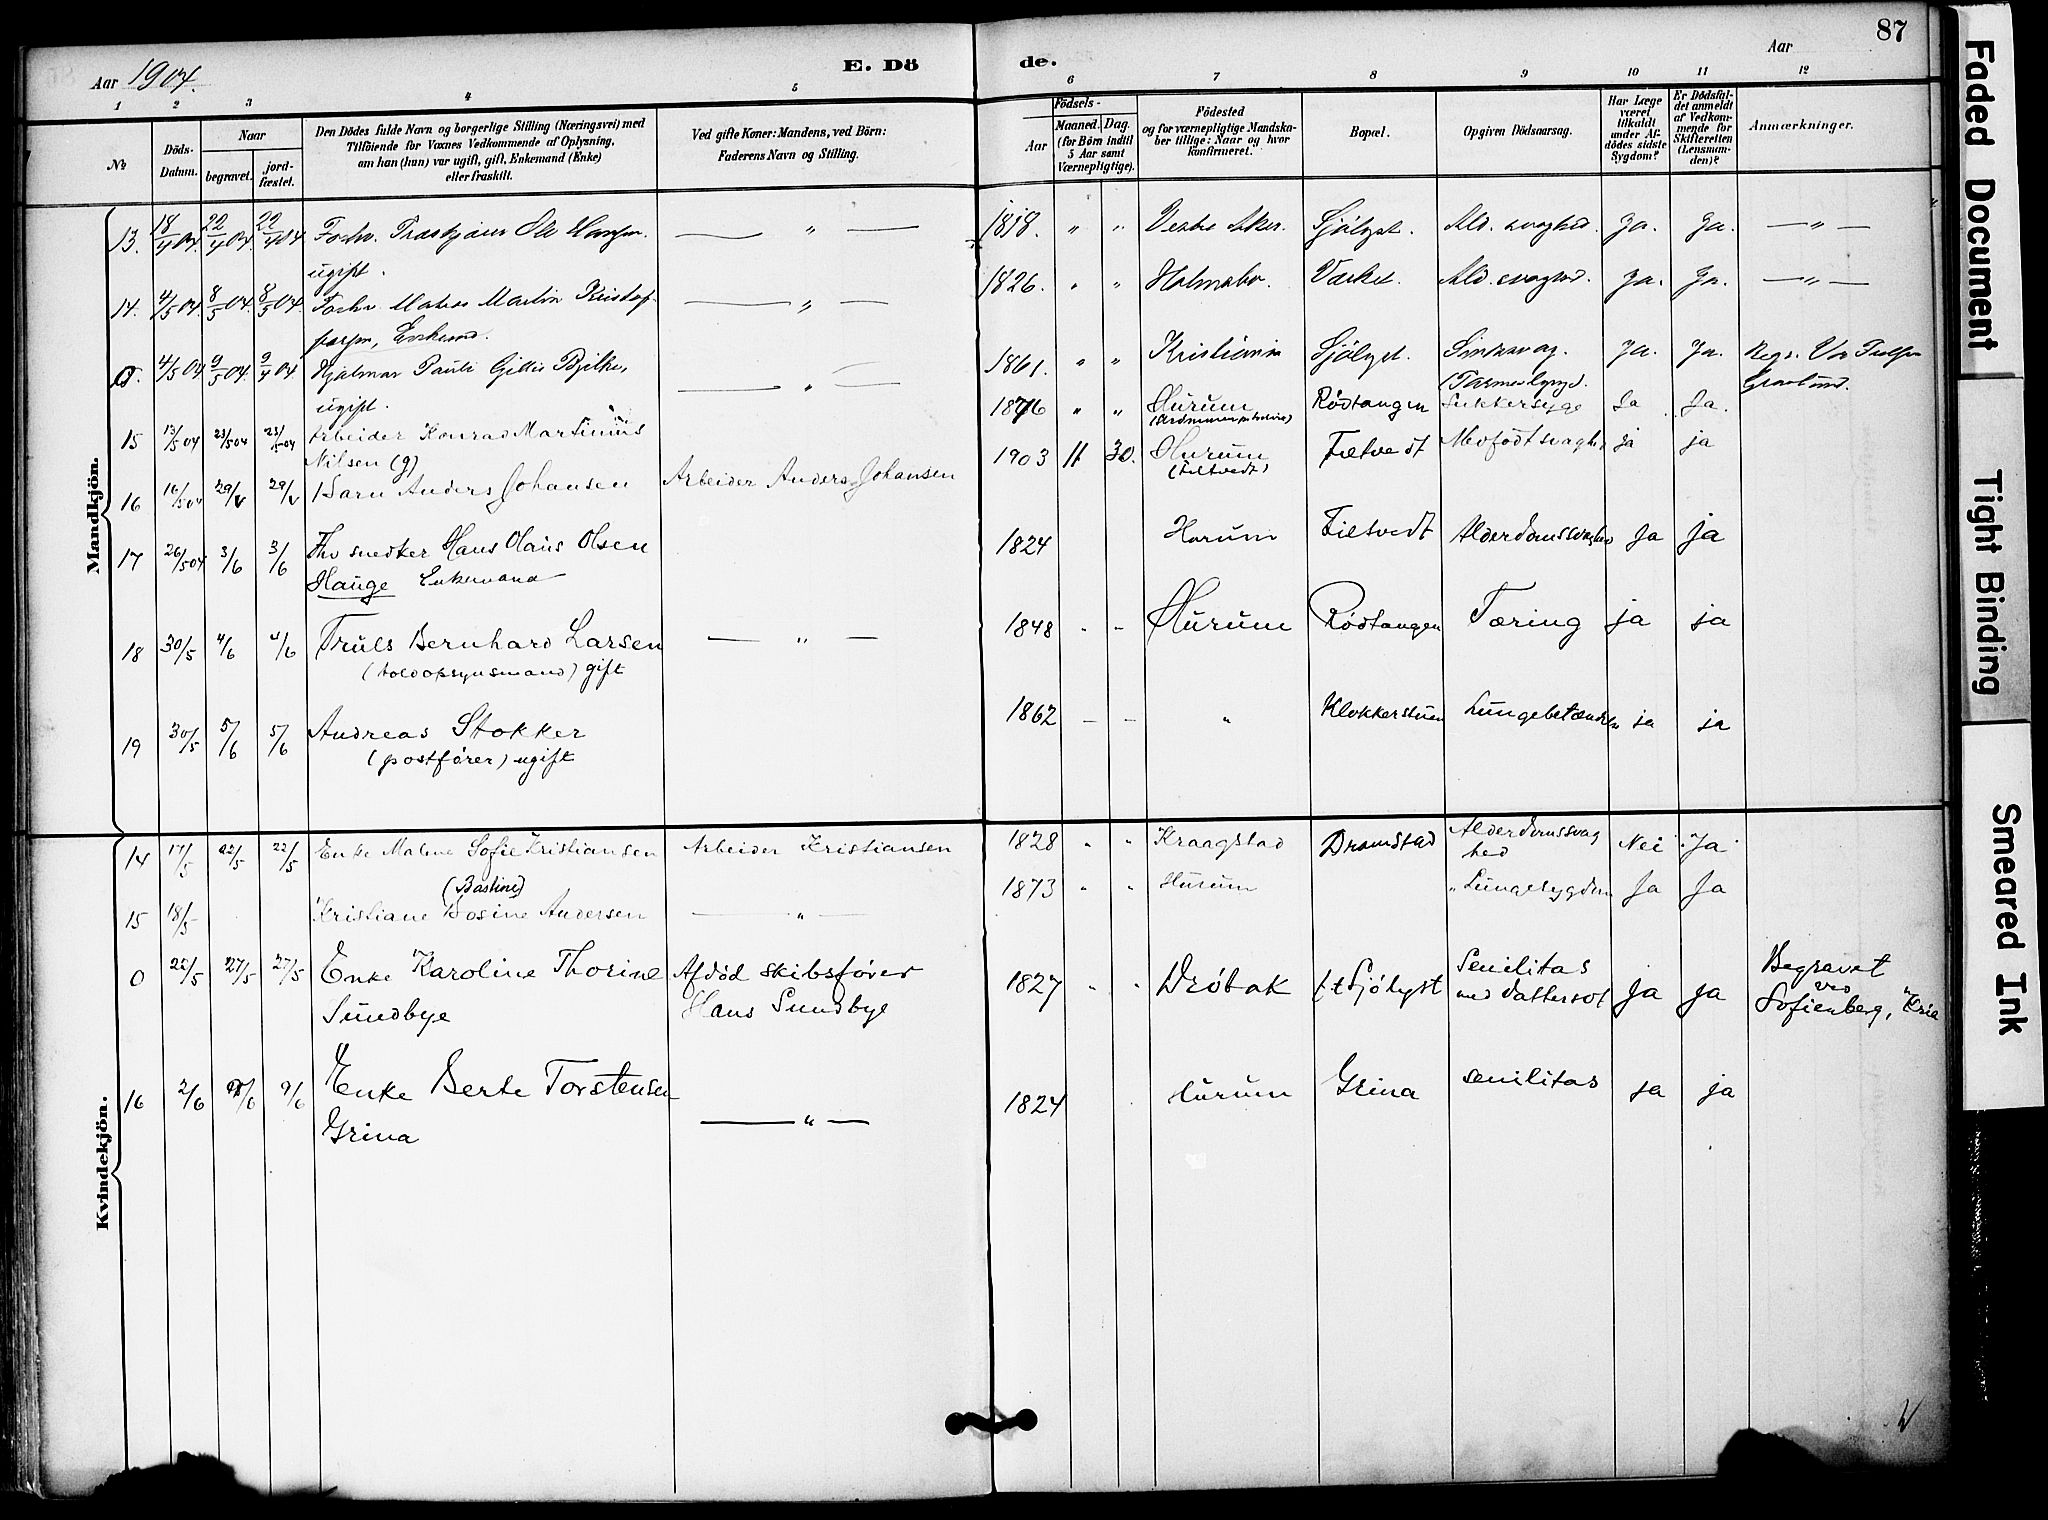 87
Aar 1904.
E. Dö
de.
Aar
1 2 3 4 5
6 7 8 9 10 11 12
No
Döds-Datum.
Naar
begravet.
jord-fæstet.
Den Dödes fulde Navn og borgerlige Stilling (Næringsvei) med
Tilföiende for Voxnes Vedkommende af Oplysning,
om han (hun) var ugift, gift, Enkemand (Enke)
eller fraskilt.
Ved gifte Koner: Mandens, ved Börn:
Faderens Navn og Stilling.
Födsels-
Aar
Maaned. Dag.
(for Börn indtil
5 Aar samt
Værnepligtige).
Födested
og for værnepligtige Mandska-
ber tillige: Naar og hvor
konfirmeret.
Bopæl.
Opgiven Dödsaarsag.
Har Læge
været
tilkaldt
under Af-
dödes sidste
Sygdom?
Er Dödsfal-
det anmeldt
af Vedkom-
mende for
Skifteretten
(Lensman-
den)?
Anmærkninger.
Mandkjön.
13. 18/4 04 22/4 04 22/4 04 Ole Hansen. — " — 1818. " " Vestre Aker. Sjölyst. Ald. svaghed. Ja. Ja. — " —
ugift.
14. 4/5 04 8/5 04 8/5 04 Martin Kristof- — " — 1826. " " Holmsbo. Værket. Ald. svaghed. Ja. Ja. — " —
fersen, Enkemd.
0. 4/5 04 9/5 04 9/4 04 Hjalmar Pauli Bjelke, — " — 1861. " " Kristiania Sjölyst. Sindssvag. Ja. Ja. Begr. Vor Frelsers
ugift. Gravlund.
15 13/5 04 23/5 04 23/5 04 Arbeider Konrad Martinius 1876 " " Hurum Rödtangen Sukkersyge Ja Ja.
Nilsen (g)
16 16/5 04 29/V 29/V Barn Anders Johansen Arbeider Anders Johansen 1903 11 30. Hurum Filtvedt Medfödt svaghed ja ja
(Filtvedt)
17 26/5 04 3/6 3/6 Fhv snedker Hans Olaus Olsen 1824 Hurum Filtvedt Alderdomssvaghed Ja ja
Hauge Enkemand
18 30/5 4/6 4/6 Truls Bernhard Larsen — " — 1848 - - Hurum Rödtangen Tæring ja ja
(toldopsynsmand) gift
19 30/5 5/6 5/6 Andreas Stokker 1862 - - " Klokkerstuen Lungebetændelse ja ja
(postförer) ugift
Kvindekjön.
14 17/5 22/5 22/5 Enke Malene Sofie Kristiansen Arbeider Kristiansen 1828 " " Kraagstad Dramstad Alderdomssvag Nei Ja
hed
(Bastine)
15 18/5 Kristiane Bosine Andersen — " — 1873 " " Hurum Lungesygdom Ja Ja
0 22/5 27/5 27/5 Enke Karoline Thorine Afdöd skibsförer 1827 " " Dröbak f.t Sjölyst Senilitas ja ja Begravet
Sundbye Hans Sundbye med Vattersot ved
Sofienberg, Kria
16 2/6 9/6 9/6 Enke Berte Torstensen — " — 1824 Hurum Grina senilitas ja ja
Grina
Faded Document
Tight Binding
Smeared Ink